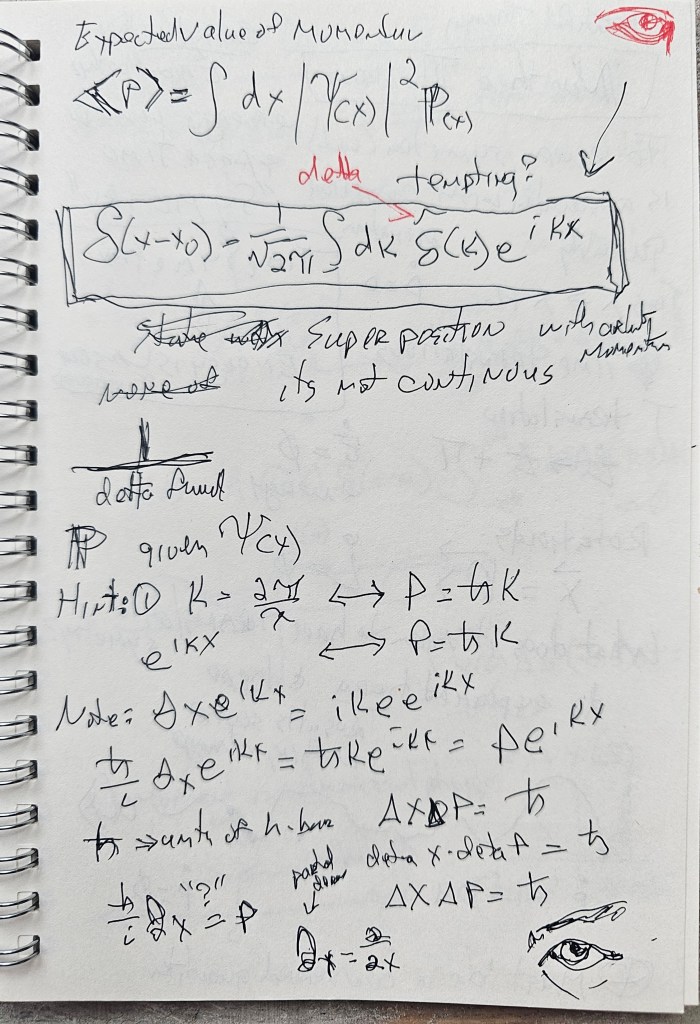 Expected value of Momentum
⟨P⟩ = ∫ dx |Ψ(x)|² P(x)
delta
tempting?
δ(x-x₀) = 1/√2π ∫ dk δ̃(k) e^ikx
Super position with
Momentum
its not continous
delta funct
P given Ψ(x)
Hint: ① K = 2π/λ ↔ P = ħK
e^iKx ↔ P = ħK
Note: ∂x e^iKx = iKe e^iKx
ħ/i ∂x e^iKx = ħKe^iKx = Pe^iKx
ħ ⇒ units of h-bar ΔXΔP = ħ
delta x · delta P = ħ
ΔXΔP = ħ
ħ/i ∂x "?"= P
∂x = ∂/∂x